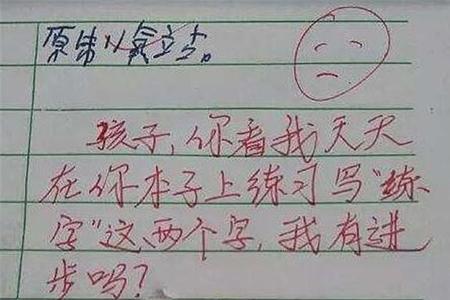 孩子,你看我天天
在你本子上练习写“练
字”这两个字,我有进
步吗?